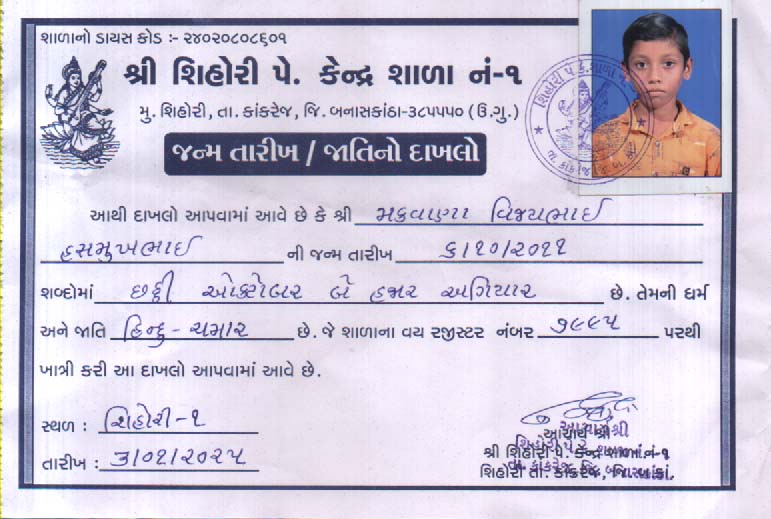 શાળાનો ડાયસ કોડ :- ૨૪૦૨૦૮૦૮૬૦૧
શ્રી શિહોરી પે. કેન્દ્ર શાળા નં-૧
મુ. શિહોરી, તા. કાંકરેજ, જિ. બનાસકાંઠા-૩૮૫૫૫૦ (ઉ.ગુ.)
જન્મ તારીખ / જાતિનો દાખલો
આથી દાખલો આપવામાં આવે છે કે શ્રી મકવાણા વિજયભાઈ
હસમુખભાઈ ની જન્મ તારીખ ૬/૧૦/૨૦૧૧
શબ્દોમાં છઠ્ઠી ઓક્ટોબર બે હજાર અગિયાર છે. તેમની ધર્મ
અને જાતિ હિન્દુ - ચમાર છે. જે શાળાના વય રજીસ્ટર નંબર ૭૯૯૫ પરથી
ખાત્રી કરી આ દાખલો આપવામાં આવે છે.
સ્થળ : શિહોરી-૧
તારીખ : ૩/૦૧/૨૦૨૫
આચાર્ય શ્રી
શ્રી શિહોરી પે. કેન્દ્ર શાળા નં-૧
શિહોરી તા. કાંકરેજ, જિ. બ.કાં.